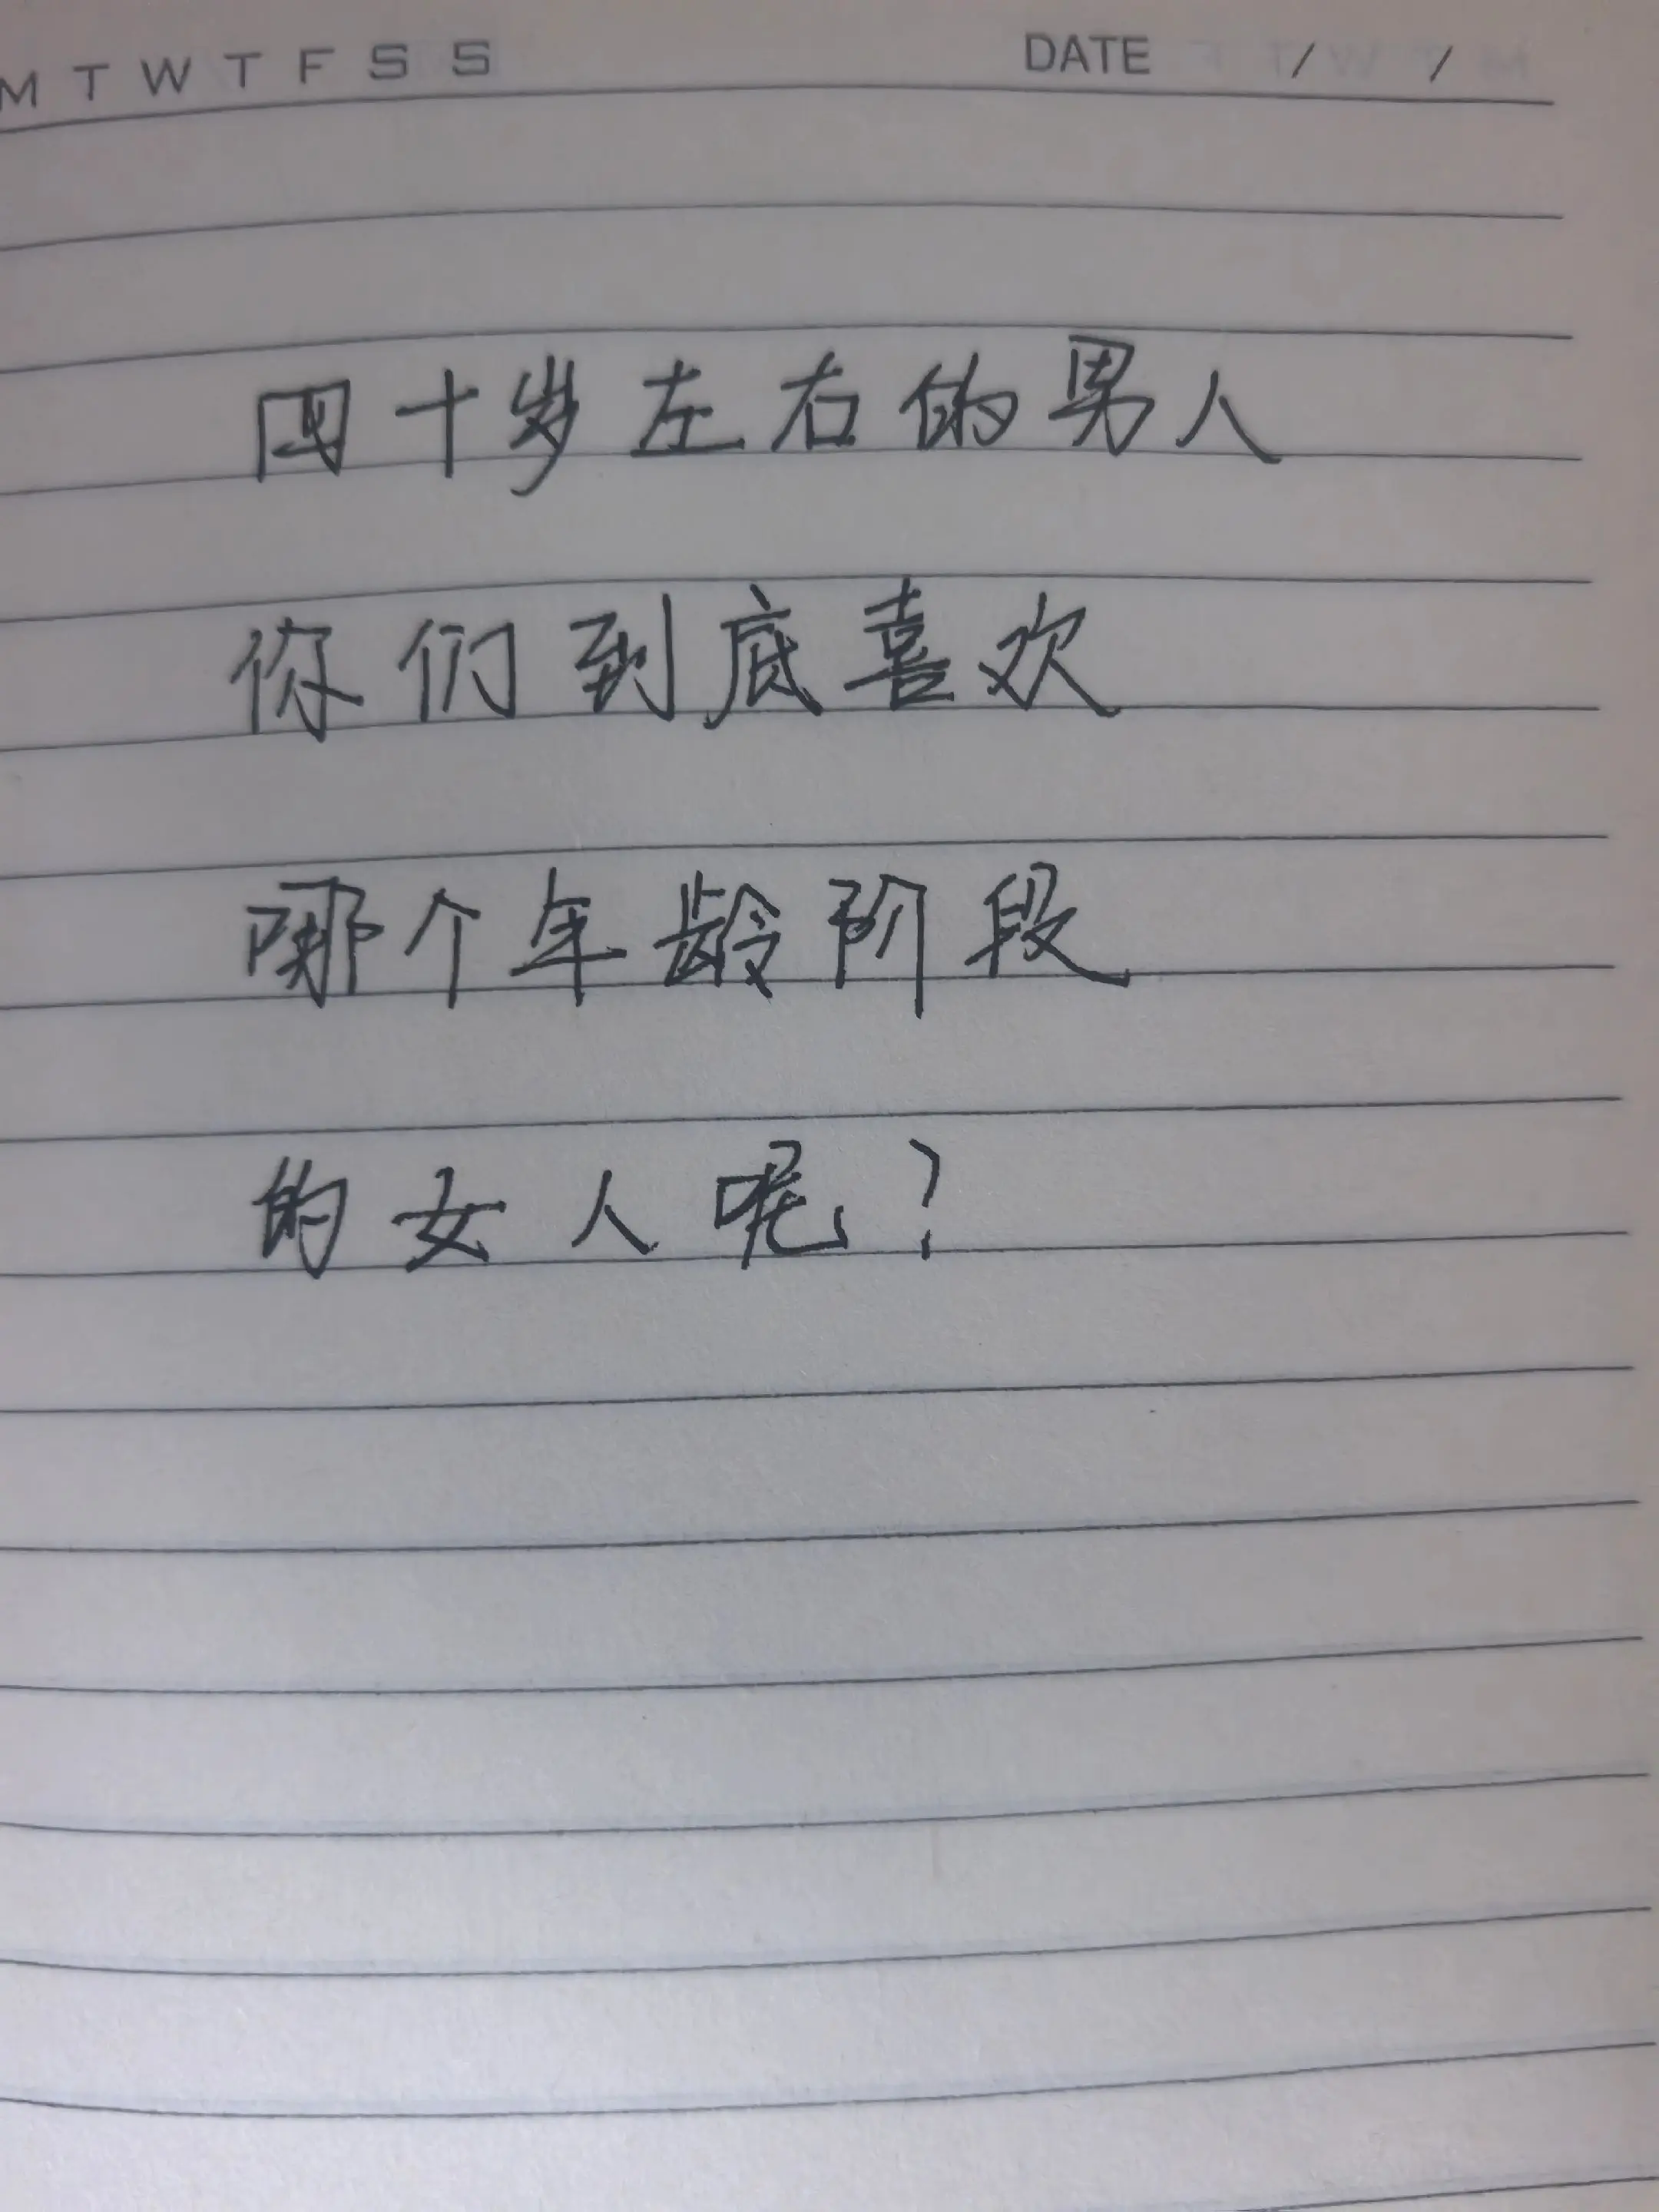 M T W T F S S DATE / /
四十岁左右的男人
你们到底喜欢
哪个年龄阶段
的女人呢?